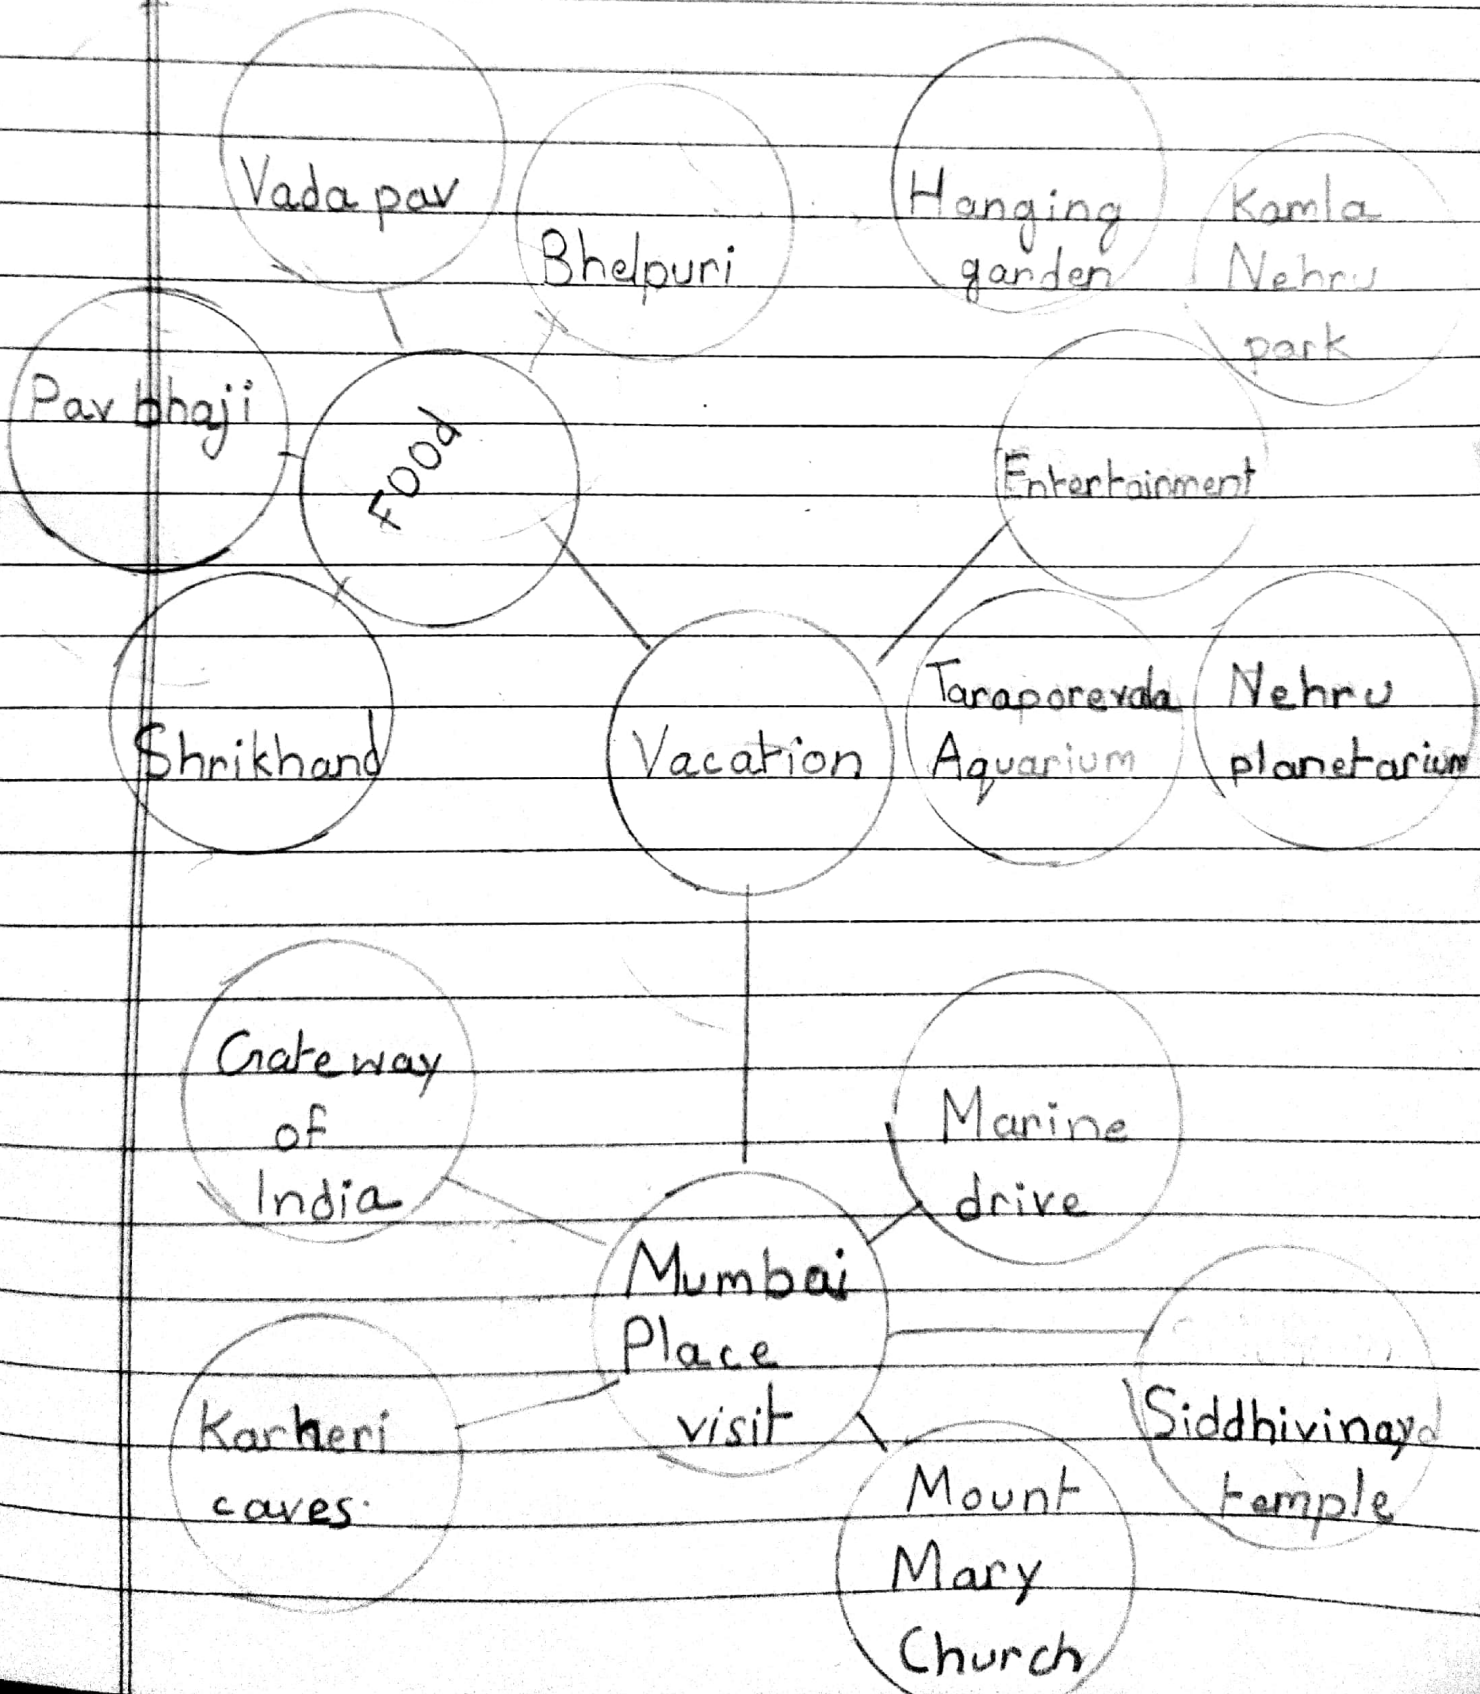 Vada pav
Bhelpuri
Hanging
garden
Kamla
Nehru
park
Pav bhaji
FOOd
Entertainment
Shrikhand
Vacation
Taraporevala
Aquarium
Nehru
planetarium
Gateway
of
India
Marine
drive
Mumbai
Place
visit
Karheri
caves.
Siddhivinayd
temple
Mount
Mary
Church